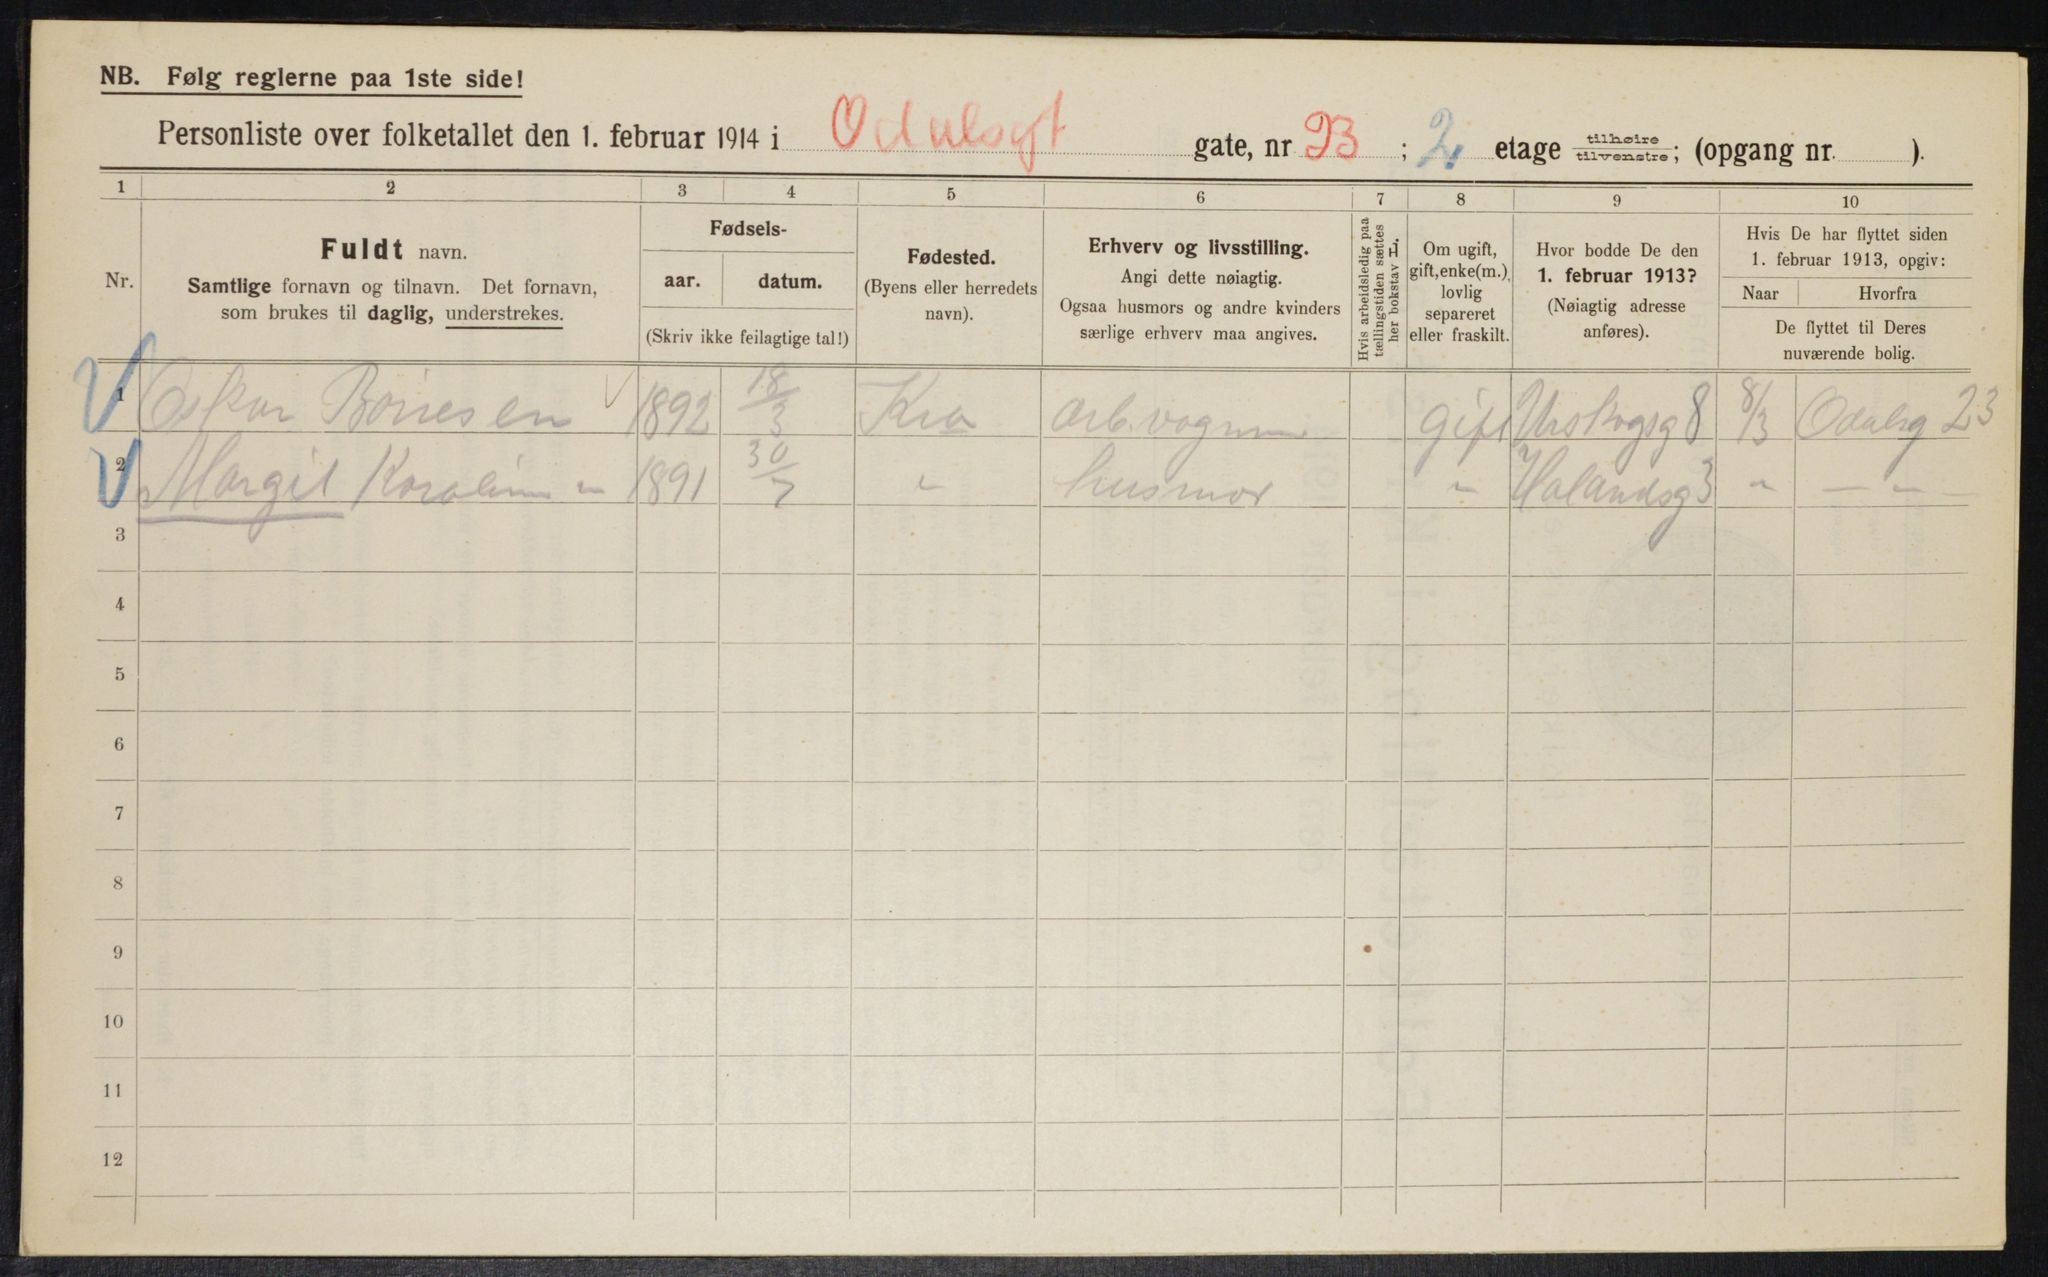 NB. Følg reglerne paa 1ste side!
Personliste over folketallet den 1. februar 1914 i Odalsgt gate, nr 23; 2 etage tilhøire tilvenstre; (opgang nr. ).
1 2 3 4 5 6 7 8 9 10
Nr.
Fuldt navn.
Samtlige fornavn og tilnavn. Det fornavn,
som brukes til daglig, understrekes.
Fødsels-
aar. datum.
(Skriv ikke feilagtige tal!)
Fødested.
(Byens eller herredets
navn).
Erhverv og livsstilling.
Angi dette nøiagtig.
Ogsaa husmors og andre kvinders
særlige erhverv maa angives.
Hvis arbeidsledig paa
tællingstiden sættes
her bokstav L.
Om ugift,
gift, enke(m.),
lovlig
separeret
eller fraskilt.
Hvor bodde De den
1. februar 1913?
(Nøiagtig adresse
anføres).
Hvis De har flyttet siden
1. februar 1913, opgiv:
Naar Hvorfra
De flyttet til Deres
nuværende bolig.
1 Oskar Borresen 1892 18/3 Kra Arb. Gift Urskogsg 8 8/3 Odalsg 23
2 Margit Karoline " 1891 30/7 " husmor " 3 " — " —
3
4
5
6
7
8
9
10
11
12